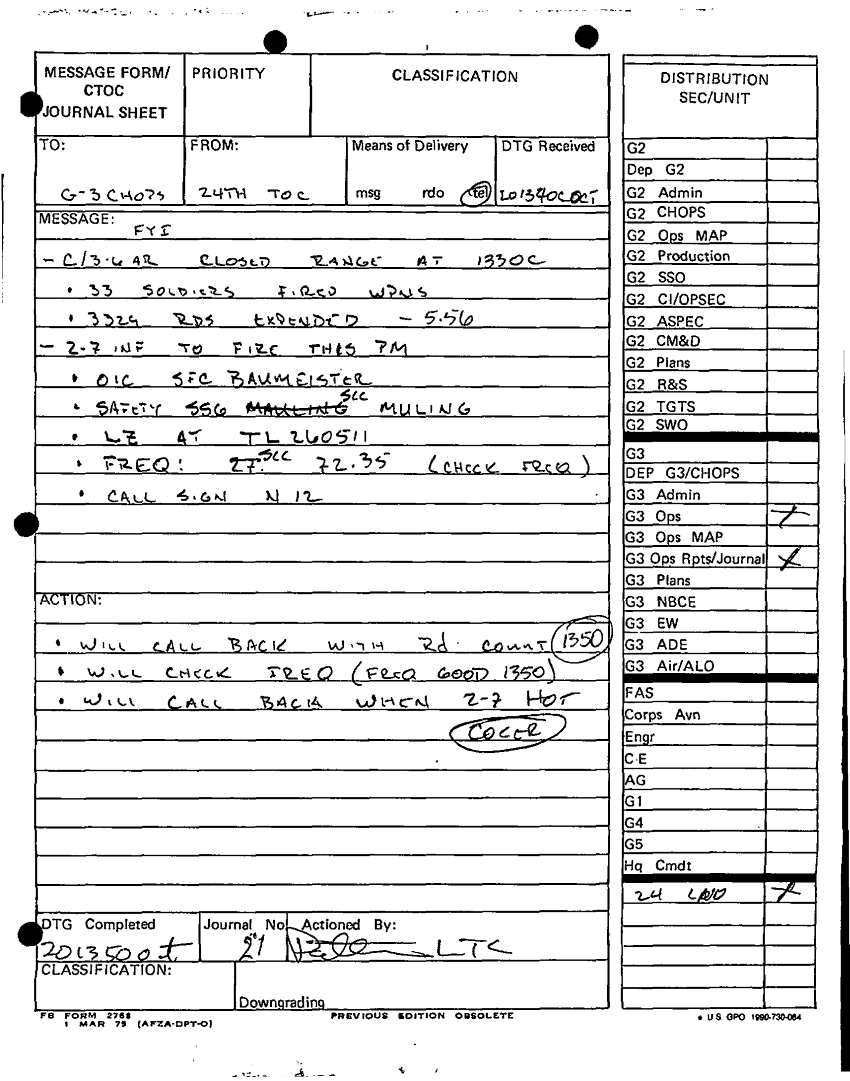 MESSAGE FORM/
CTOC
JOURNAL SHEET
PRIORITY
CLASSIFICATION
TO:
G-3 CHOPS
FROM:
24TH TOC
Means of Delivery
msg rdo tel
DTG Received
201340COCT
MESSAGE:
FYI
- C/3-6 AR CLOSED RANGE AT 1330C
• 33 SOLDIERS FIRED WPNS
• 3324 RDS EXPENDED - 5.56
- 2-7 INF TO FIRE THIS PM
• OIC SFC BAUMEISTER
• SAFETY SSG MAULING SCC MULING
• LZ AT TL260511
• FREQ: 27. SCC 72.35 (CHECK FREQ)
• CALL SIGN N12
ACTION:
• WILL CALL BACK WITH Rd. COUNT 1350
• WILL CHECK FREQ (FREQ GOOD 1350)
• WILL CALL BACK WHEN 2-7 HOT
COKER
DTG Completed
201350Oct
Journal No
21
Actioned By:
LTC
CLASSIFICATION:
Downgrading
FB FORM 2768
1 MAR 79 (AFZA-DPT-O)
PREVIOUS EDITION OBSOLETE
DISTRIBUTION
SEC/UNIT
G2
Dep G2
G2 Admin
G2 CHOPS
G2 Ops MAP
G2 Production
G2 SSO
G2 CI/OPSEC
G2 ASPEC
G2 CM&D
G2 Plans
G2 R&S
G2 TGTS
G2 SWO
G3
DEP G3/CHOPS
G3 Admin
G3 Ops X
G3 Ops MAP
G3 Ops Rpts/Journal X
G3 Plans
G3 NBCE
G3 EW
G3 ADE
G3 Air/ALO
FAS
Corps Avn
Engr
C-E
AG
G1
G4
G5
Hq Cmdt
24 LNO X
* US GPO 1990-730-064